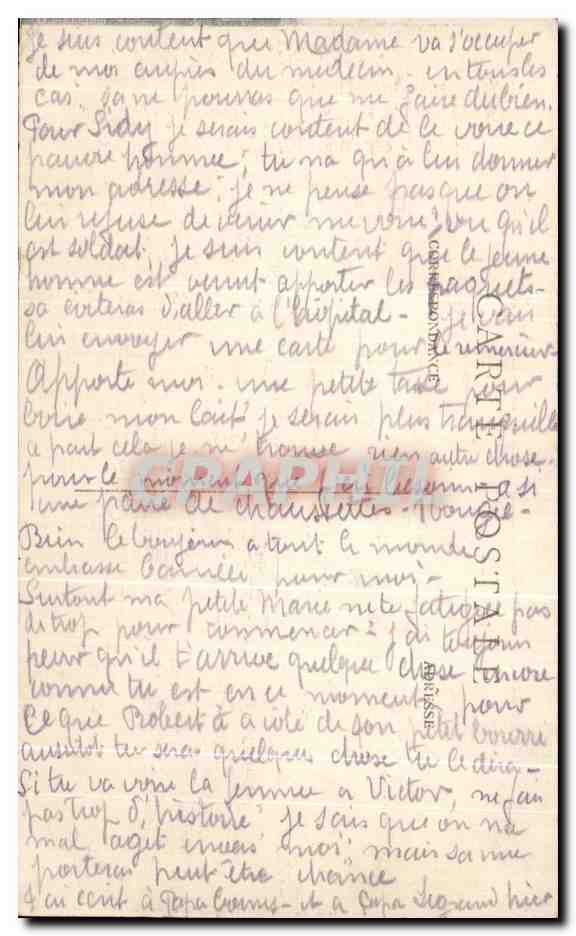 Je suis content que Madame va s'occuper
de moi auprès du medecin. en tous les
cas, sa ne pourras que me faire du bien.
Pour Sidy je serais content de le voire ce
pauvre homme, tu na qu'à lui donner
mon adresse, je ne pense pas que on
lui refuse de venir me voire vu qu'il
est soldat. Je suis content que le jeune
homme est venut apporter les paquets
sa éviteras d'aller à l'hôpital - je vais
lui envoyer une carte pour le remercier
Apporte moi une petite tasse pour
boire mon lait je serais plus tranquille
a part cela je ne trouve rien autre chose.
pour le moment que j'ai besoin, a si
une paire de chaussettes rouge.
Bien le bonjour a tout le monde
embrasse Camille pour moi -
Surtout ma petite Marie ne te fatigue pas
de trop pour commencer j'ai toujours
peur qu'il t'arrive quelque chose encore
comme tu est en ce moment pour
ce que Robert à a coté de son petit
ausitot tu seras quelques chose tu le diras -
Si tu va voire la femme a Victor, ne fau
pas trop d'histoire, je sais que on na
mal agit envers moi, mais sa me
porteras peut être chance
J'ai ecrit à Papa et a Papa Legrand hier
CARTE POSTALE
CORRESPONDANCE
ADRESSE
CPAPHIL